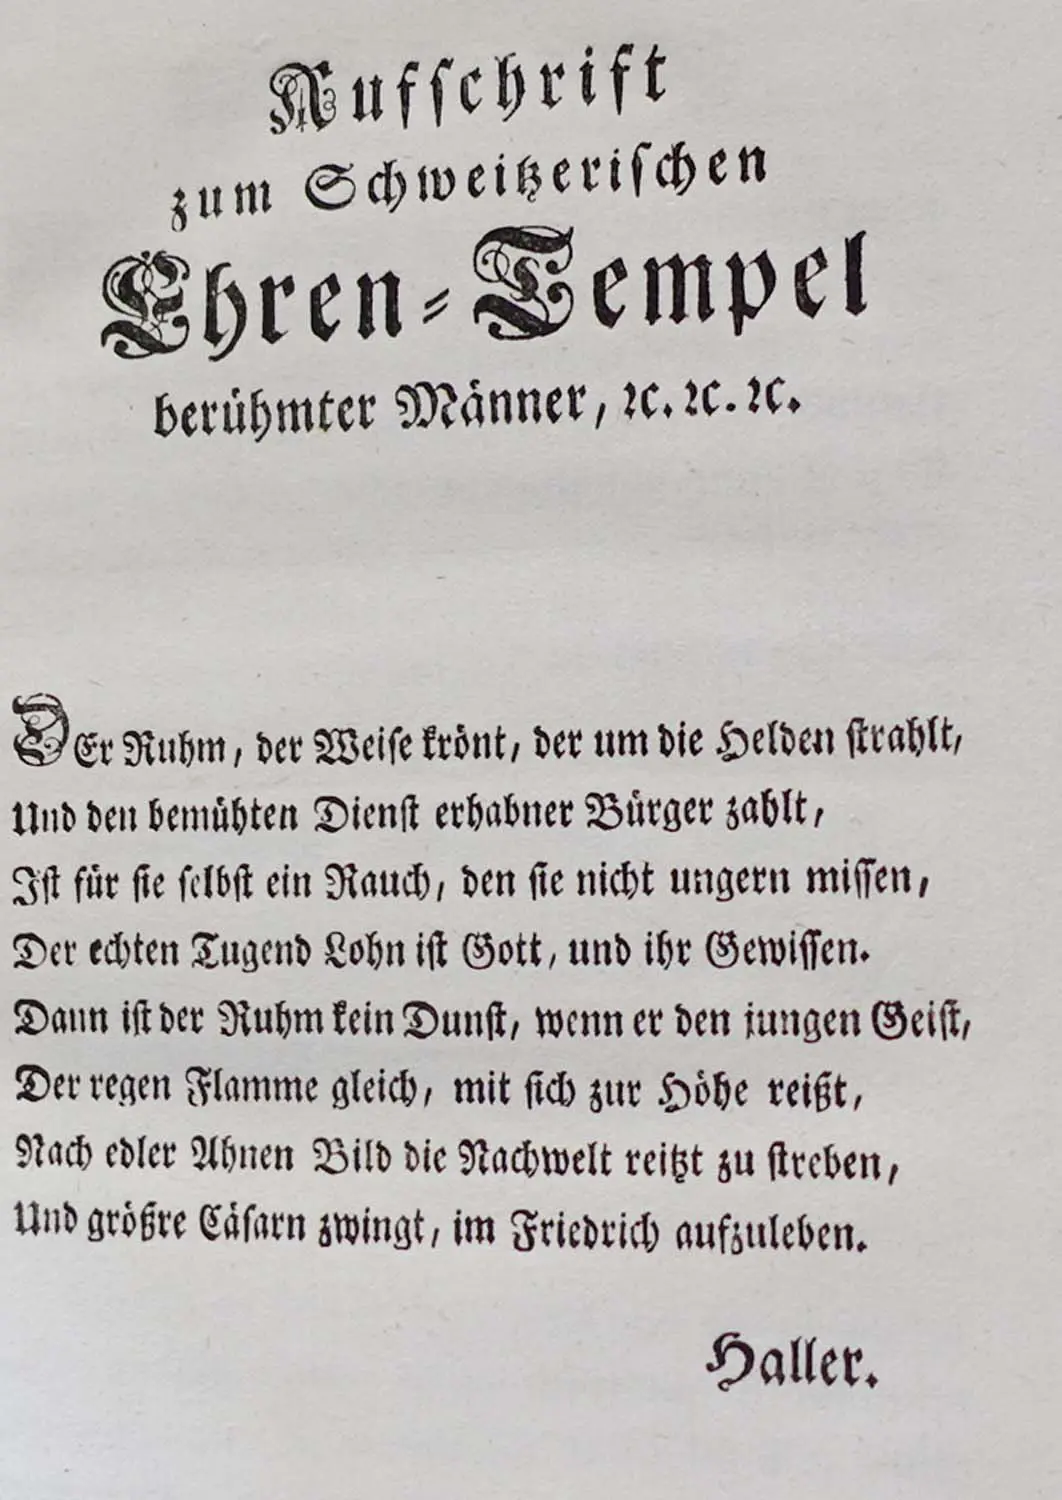 Aufschrift
zum Schweitzerischen
Ehren-Tempel
berühmter Männer, ꝛc. ꝛc. ꝛc.
DEr Ruhm, der Weise krönt, der um die Helden strahlt,
Und den bemühten Dienst erhabner Bürger zahlt,
Ist für sie selbst ein Rauch, den sie nicht ungern missen,
Der echten Tugend Lohn ist Gott, und ihr Gewissen.
Dann ist der Ruhm kein Dunst, wenn er den jungen Geist,
Der regen Flamme gleich, mit sich zur Höhe reißt,
Nach edler Ahnen Bild die Nachwelt reitzt zu streben,
Und größre Cäsarn zwingt, im Friedrich aufzuleben.
Haller.